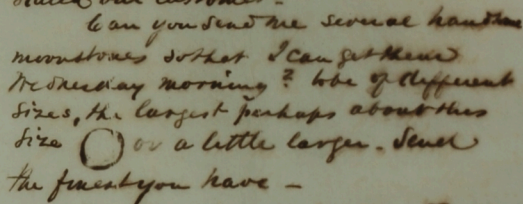 our customer.
Can you send me several handsome
moonstones so that I can get them
Wednesday morning? to be of different
sizes, the largest perhaps about this
size or a little larger. Send
the finest you have –